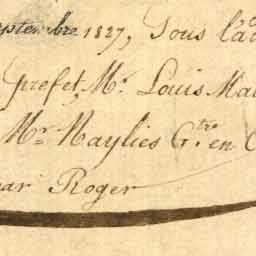 Septembre 1827, Sous l'a
Prefet, Mr. Louis Ma
Mr. Naylies G.tre en C
par Roger